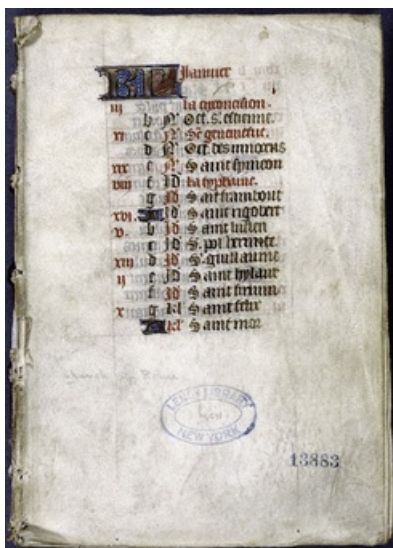 KL Januier
iii la circoncision.
b N Oct. s. estienne.
xi c N Se geneuiefue.
d N Oct. des innocens
xix e N Saint symeon
viii f Id La typhaine.
g Id Saint frambout
xvi. A Id Saint rigobert
v. b Id Saint lucien
c Id S. pol hermite.
xiii d Id S. guillaume
ii e Id Saint hylaire
f Id Saint firmin
x g kl Saint felix
A kl Saint mor
LENOX LIBRARY
NEW YORK
13883